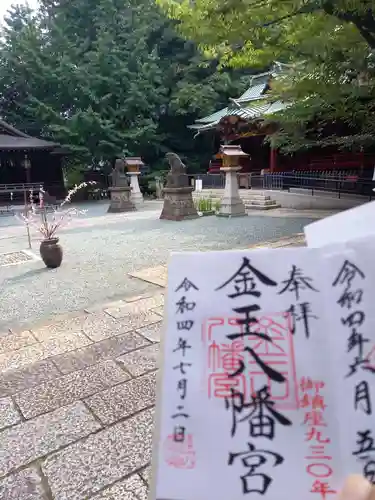 令和四年六月五日
奉拝
御鎮座九三〇年
金王八幡宮
令和四年七月二日